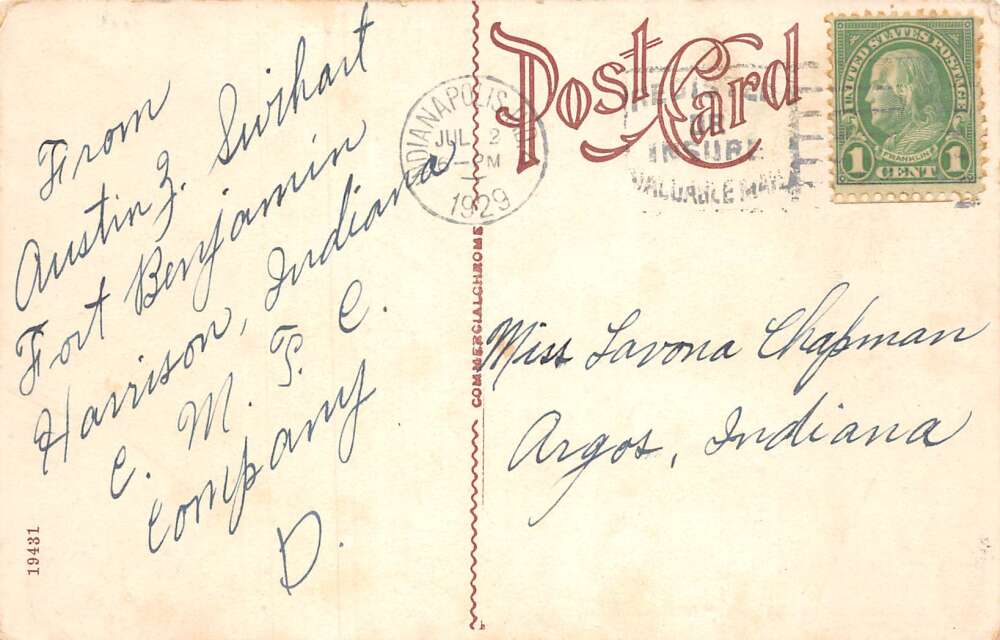 From
Austin Z. Swihart
Fort Benjamin
Harrison, Indiana
C. M. T. C.
Company
D.
19431
COMMERCIALCHROME
Post Card
INDIANAPOLIS
JUL 2
6-PM
1929
REGISTER
OR
INSURE
VALUABLE MAIL
UNITED STATES POSTAGE
FRANKLIN
1 CENT 1
Miss Lavona Chapman
Argos, Indiana